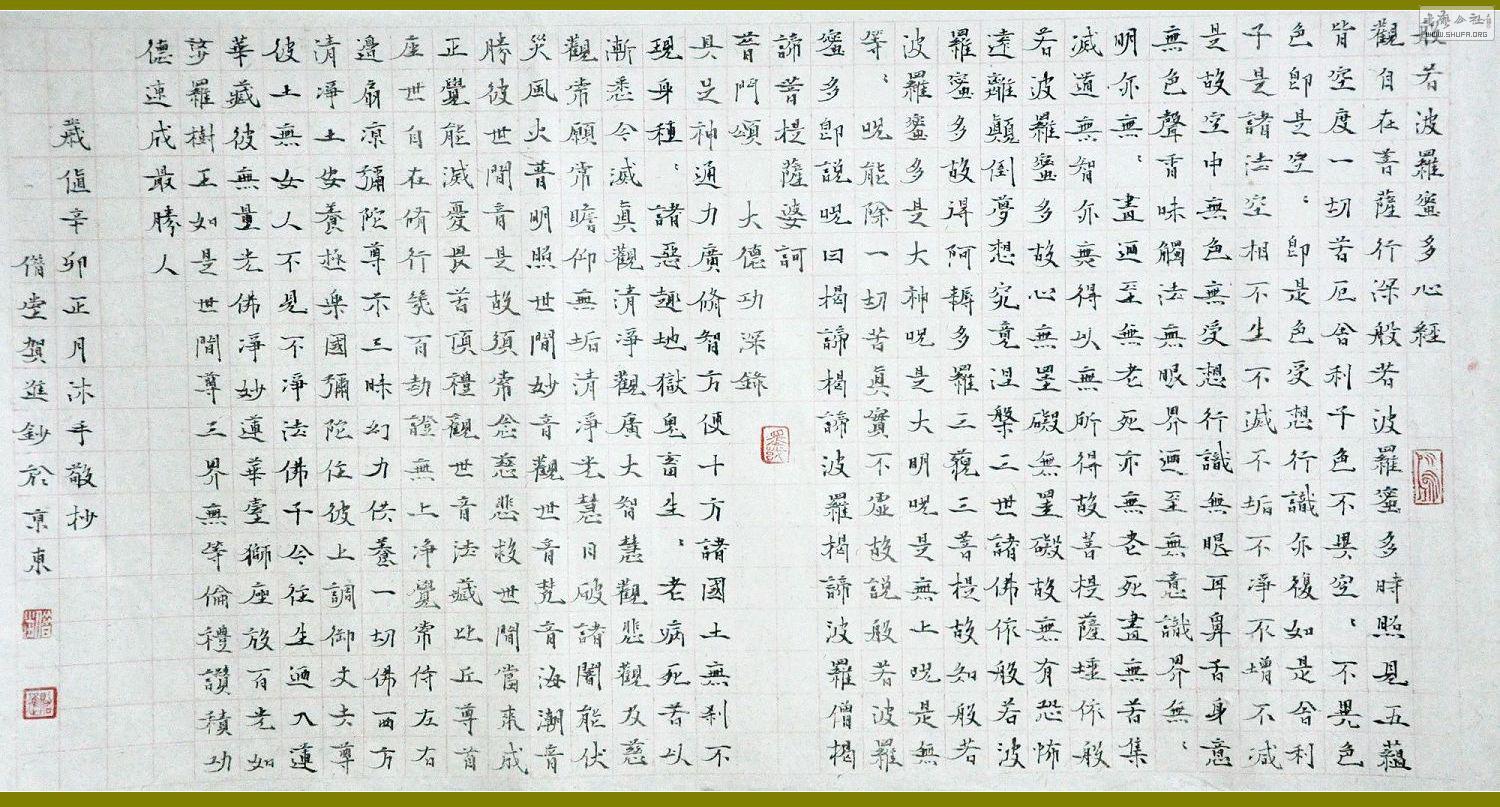 般若波羅蜜多心經
觀自在菩薩行深般若波羅蜜多時照見五蘊
皆空度一切苦厄舍利子色不異空〻不異色
色即是空〻即是色受想行識亦復如是舍利
子是諸法空相不生不滅不垢不淨不增不減
是故空中無色無受想行識無眼耳鼻舌身意
無色聲香味觸法無眼界迺至無意識界無〻
明亦無〻盡迺至無老死亦無老死盡無苦集
滅道無智亦無得以無所得故菩提薩埵依般
若波羅蜜多故心無罣礙無罣礙故無有恐怖
遠離顛倒夢想究竟涅槃三世諸佛依般若波
羅蜜多故得阿耨多羅三藐三菩提故知般若
波羅蜜多是大神呪是大明呪是無上呪是無
等〻呪能除一切苦真實不虛故說般若波羅
蜜多即說呪曰揭諦揭諦波羅揭諦波羅僧揭
諦菩提薩婆訶
普門頌 大德功深錄
具足神通力廣脩智方便十方諸國土無刹不
現身種〻諸惡趣地獄鬼畜生〻老病死苦以
漸悉令滅真觀清淨觀廣大智慧觀悲觀及慈
觀常願常瞻仰無垢清淨光慧日破諸闇能伏
災風火普明照世間妙音觀世音梵音海潮音
勝彼世間音是故須常念慈悲救世間當來成
正覺能滅憂畏苦頂禮觀世音法藏比丘尊首
座世自在脩行幾百劫證無上淨覺常侍左右
邊扇涼彌陀尊示三昧幻力供養一切佛西方
清淨土安養極樂國彌陀住彼上調御丈夫尊
彼土無女人不見不淨法佛千今往生迺入蓮
華藏彼無量光佛淨妙蓮華臺獅座放百光如
娑羅樹王如是世間尊三界無等倫禮讚積功
德速成最勝人
歲值辛卯正月沐手敬抄
堂賀進鈔於京東
WWW.SHUFA.ORG